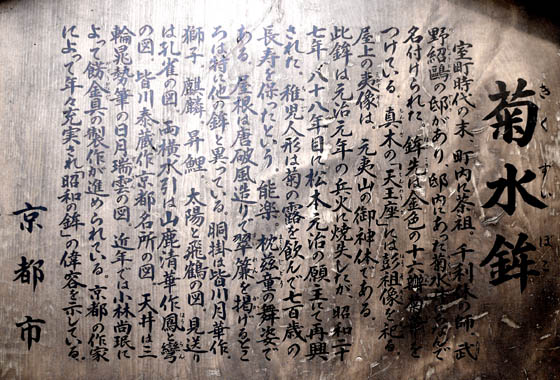 菊水鉾
きくすいほこ
室町時代の末、町内に茶祖、千利休の師、武
野紹鷗の邸があり、邸内にあった菊水井にちなんで
名付けられた。鉾先は金色の十六瓣菊
つけている。真木の「天王座」には彭祖像を祀る。
屋上の夷像は、元夷山の御神体である。
此鉾は元治元年の兵火に焼失したが、昭和二十
七年、八十八年目に松本元治の願主にて再興
された。稚児人形は菊の露を飲んで七百歳の
長寿を保ったという、能楽。枕慈童の舞姿で
ある。屋根は唐破風造りで翠簾を掲りとこ
ろは特に他の鉾と異っている。胴掛は皆川月華作、
獅子、麒麟、昇鯉、太陽と飛鶴の図、見送
は孔雀の図、両横水引は山鹿清華作鳳鸞
の図、皆川泰蔵作京都名所の図、天井は三
輪晁勢筆の日月瑞雲の図、近年では小林尚珉に
よって餝金具の製作が進められている。京都の作家
によって年々充実され「昭和の鉾」の偉容を示している。
京都市